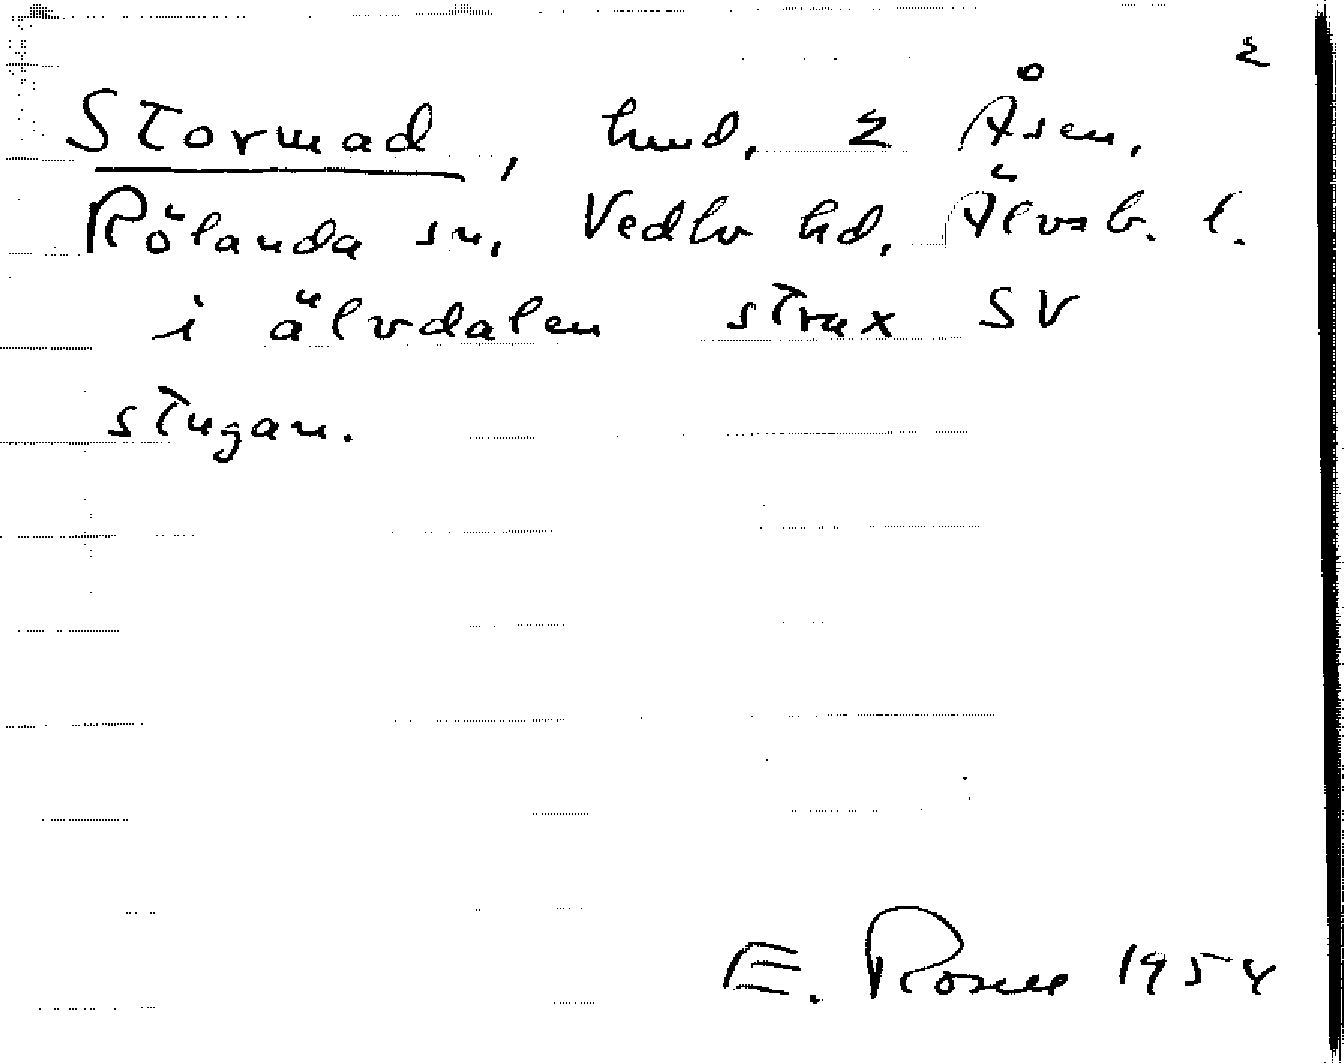 2
Stormad, hmd, 2 Åsen,
Rölanda sn, Vedbo hd, Älvsb. l.
i älvdalen strax SV
stugan.
E. Rosell 1954